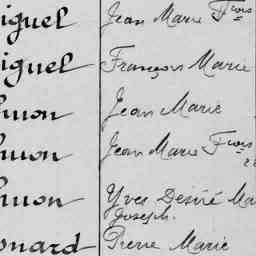 iguel Jean Marie Fçois
iguel François Marie
Jean Marie
Jean Marie Fçois
Yves Désiré Ma
Joseph.
onard Pierre Marie